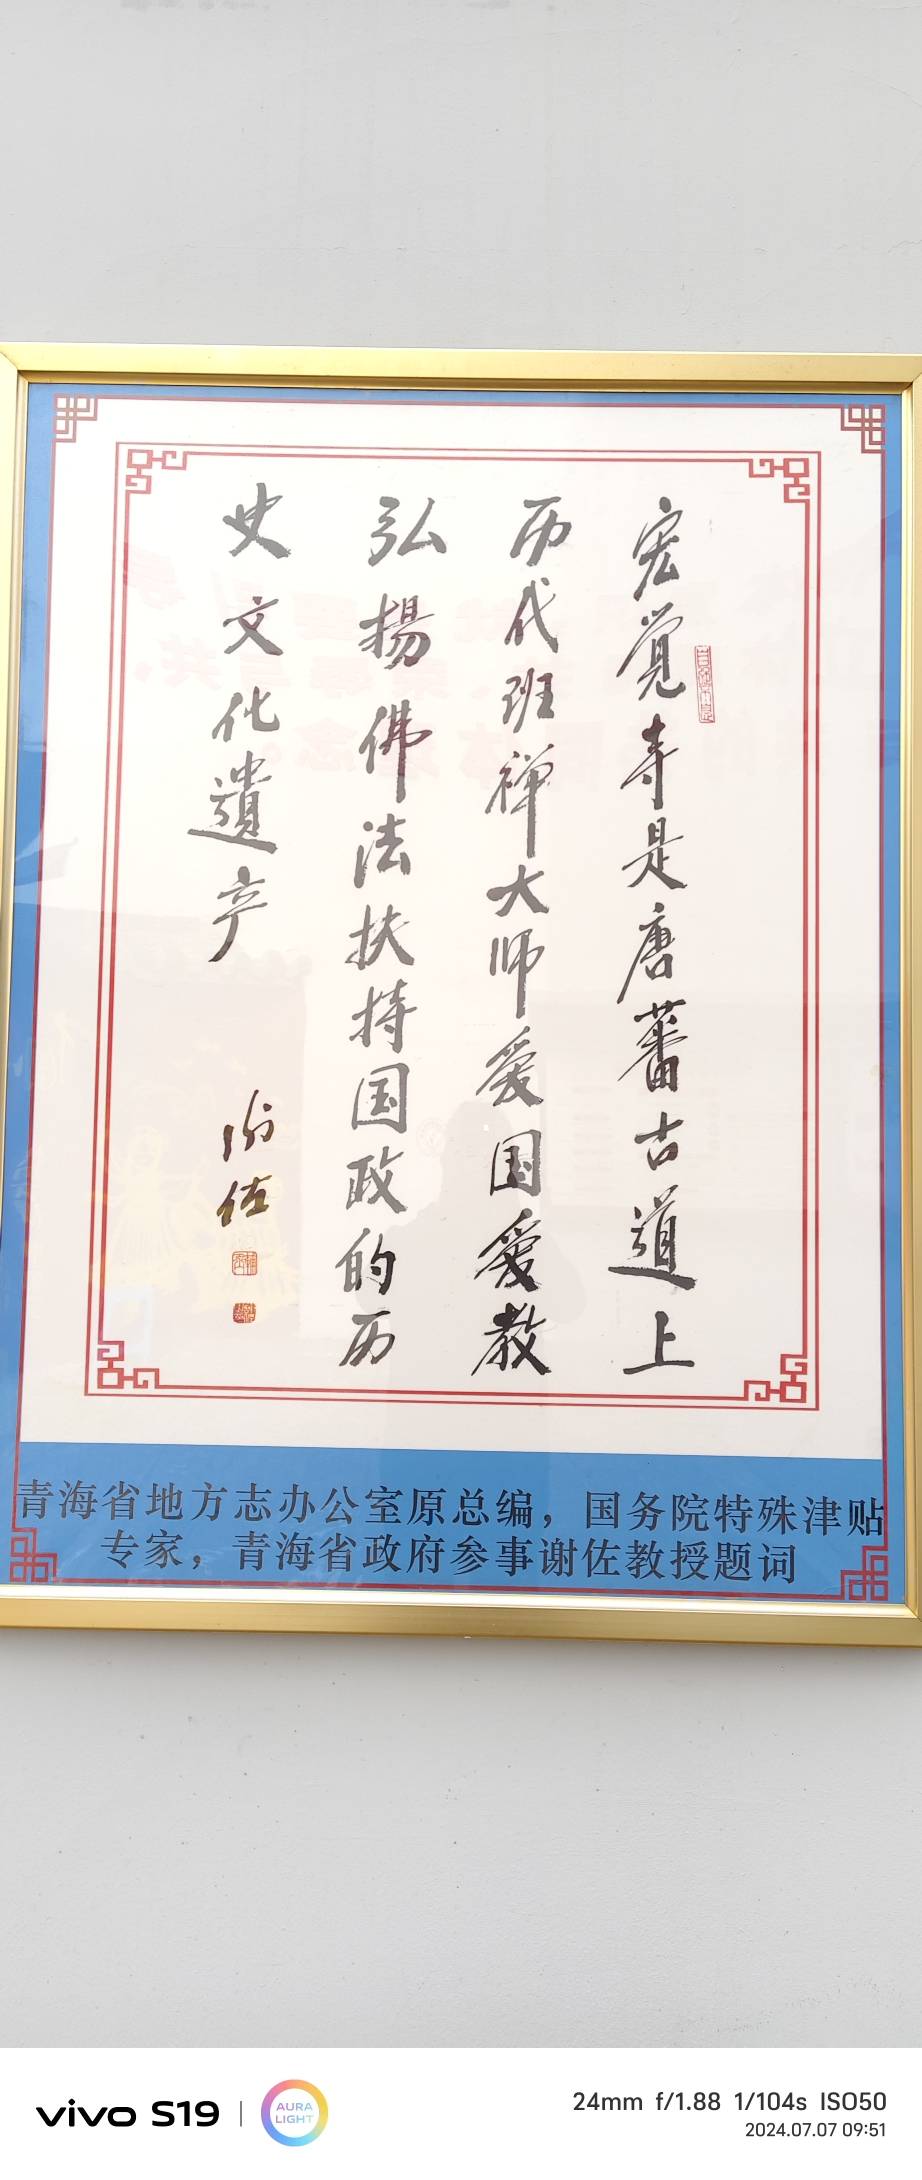 宏觉寺是唐蕃古道上
历代班禅大师爱国爱教
弘揚佛法扶持国政的历
史文化遺产
谢佐
青海省地方志办公室原总编，国务院特殊津贴
专家，青海省政府参事谢佐教授题词
vivo S19
AURA
LIGHT
24mm f/1.88 1/104s ISO50
2024.07.07 09:51